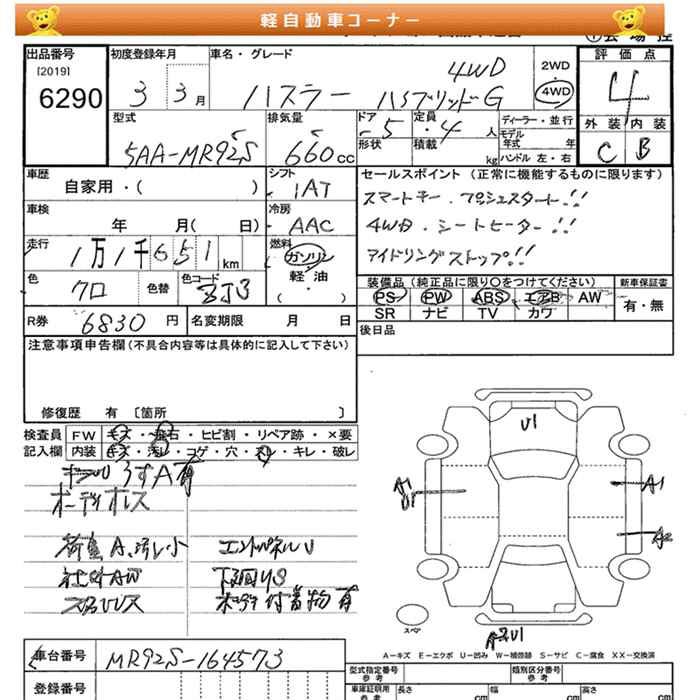 軽自動車コーナー
出品番号 初度登録年月 車名・グレード 2WD 評価点
[2019] 6290 3 3月 ハスラー ハイブリッドG 4WD 4WD 4
型式 排気量 ドア 定員 ディーラー・並行 外装 内装
5AA-MR92S 660cc 5 4人 モデル年式 年 C B
形状 積載 kg ハンドル 左・右
車歴 シフト セールスポイント (正常に機能するものに限ります)
自家用・( ) IAT スマートキー・プッシュスタート!!
車検 冷房 4WD・シートヒーター!!
年 月( 日) AAC アイドリングストップ!!
走行 燃料
1万1千651km ガソリン 軽・油 ・( )
色 色替 色コード 装備品 (純正品に限り○をつけてください) 新車保証書
クロ ZJ3 PS PW ABS エアB AW 有・無
SR ナビ TV カワ
R券 6830円 名変期限 月 日 後日品
注意事項申告欄 (不具合内容等は具体的に記入して下さい)
修復歴 有 [箇所 ]
検査員 FW キズ・飛石・ヒビ割・リペア跡・×要
記入欄 内装 キズ・汚レ・コゲ・穴・スレ・キレ・破レ
うすA有
オーディオレス
荷室A、汚レ小 エンドパネルU
社外AW 下回りS
スタッドレス 付着物有
U1
A1
U1
A1
A2
スペア
A2U1
A-キズ E-エクボ U-凹み W-補修跡 S-サビ C-腐食 XX-交換済
車台番号 MR92S-164573
登録番号
型式指定番号 参考 類別区分番号 参考
車庫証明用 参考 長さ cm 幅 cm 高さ cm